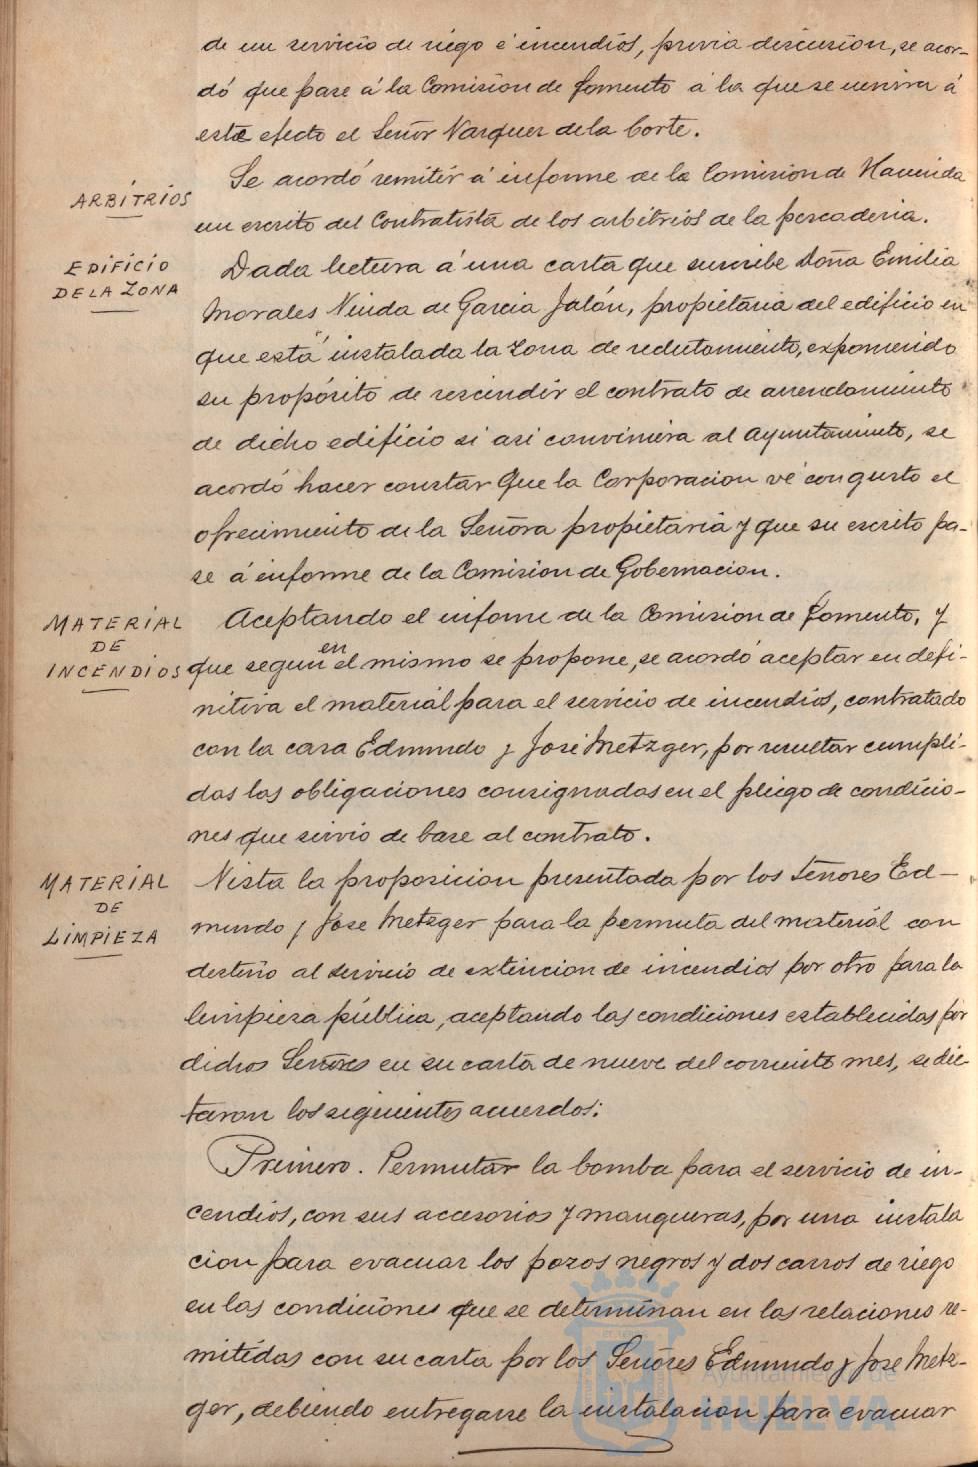 de un servicio de riego é incendios, previa discusion, se acor-
dó que pase á la Comision de fomento á la que se unirá á
este efecto el Señor Vazquez de la Corte.
ARBÍTRIOS
Se acordó remitir á informe de la Comision de Hacienda
un escrito del Contratista de los arbitrios de la pescaderia.
EDIFICIO
DE LA ZONA
Dada lectura á una carta que suscribe Doña Emilia
Morales Viuda de Garcia Jalón, propietaria del edificio en
que está instalada la Zona de reclutamiento, exponiendo
su propósito de rescindir el contrato de arrendamiento
de dicho edificio si asi conviniera al Ayuntamiento, se
acordó hacer constar que la Corporacion vé con gusto el
ofrecimiento de la Señora propietaria y que su escrito pa-
se á informe de la Comision de Gobernacion.
MATERIAL
DE
INCENDIOS
Aceptando el informe de la Comision de fomento, y
que segun en el mismo se propone, se acordó aceptar en defi-
nitiva el material para el servicio de incendios, contratado
con la casa Edmundo y José Metzger, por resultar cumpli-
das las obligaciones consignadas en el pliego de condicio-
nes que sirvió de base al contrato.
MATERIAL
DE
LIMPIEZA
Vista la proposicion presentada por los Señores Ed-
mundo y Jose Metzger para la permuta del material con
destino al servicio de extincion de incendios por otro para la
limpieza pública, aceptando las condiciones establecidas por
dichos Señores en su carta de nueve del corriente mes, se dic-
taron los siguientes acuerdos:
Primero. Permutar la bomba para el servicio de in-
cendios, con sus accesorios y mangueras, por una instala
cion para evacuar los pozos negros y dos carros de riego
en las condiciones que se determinan en las relaciones re-
mitidas con su carta por los Señores Edmundo y Jose Metz-
ger, debiendo entregarse la instalacion para evacuar
Ayuntamiento de
HUELVA